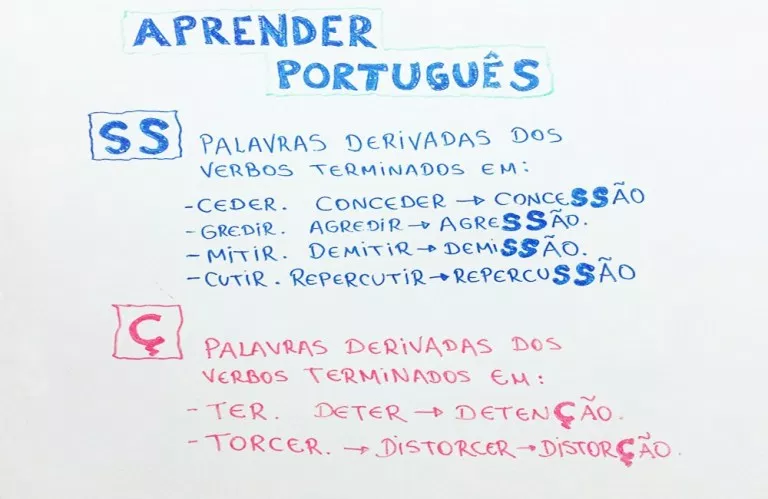 APRENDER
PORTUGUÊS
SS PALAVRAS DERIVADAS DOS
VERBOS TERMINADOS EM:
-CEDER. CONCEDER → CONCESSÃO
-GREDIR. AGREDIR → AGRESSÃO.
-MITIR. DEMITIR → DEMISSÃO.
-CUTIR. REPERCUTIR → REPERCUSSÃO
Ç PALAVRAS DERIVADAS DOS
VERBOS TERMINADOS EM:
-TER. DETER → DETENÇÃO.
-TORCER. → DISTORCER → DISTORÇÃO.